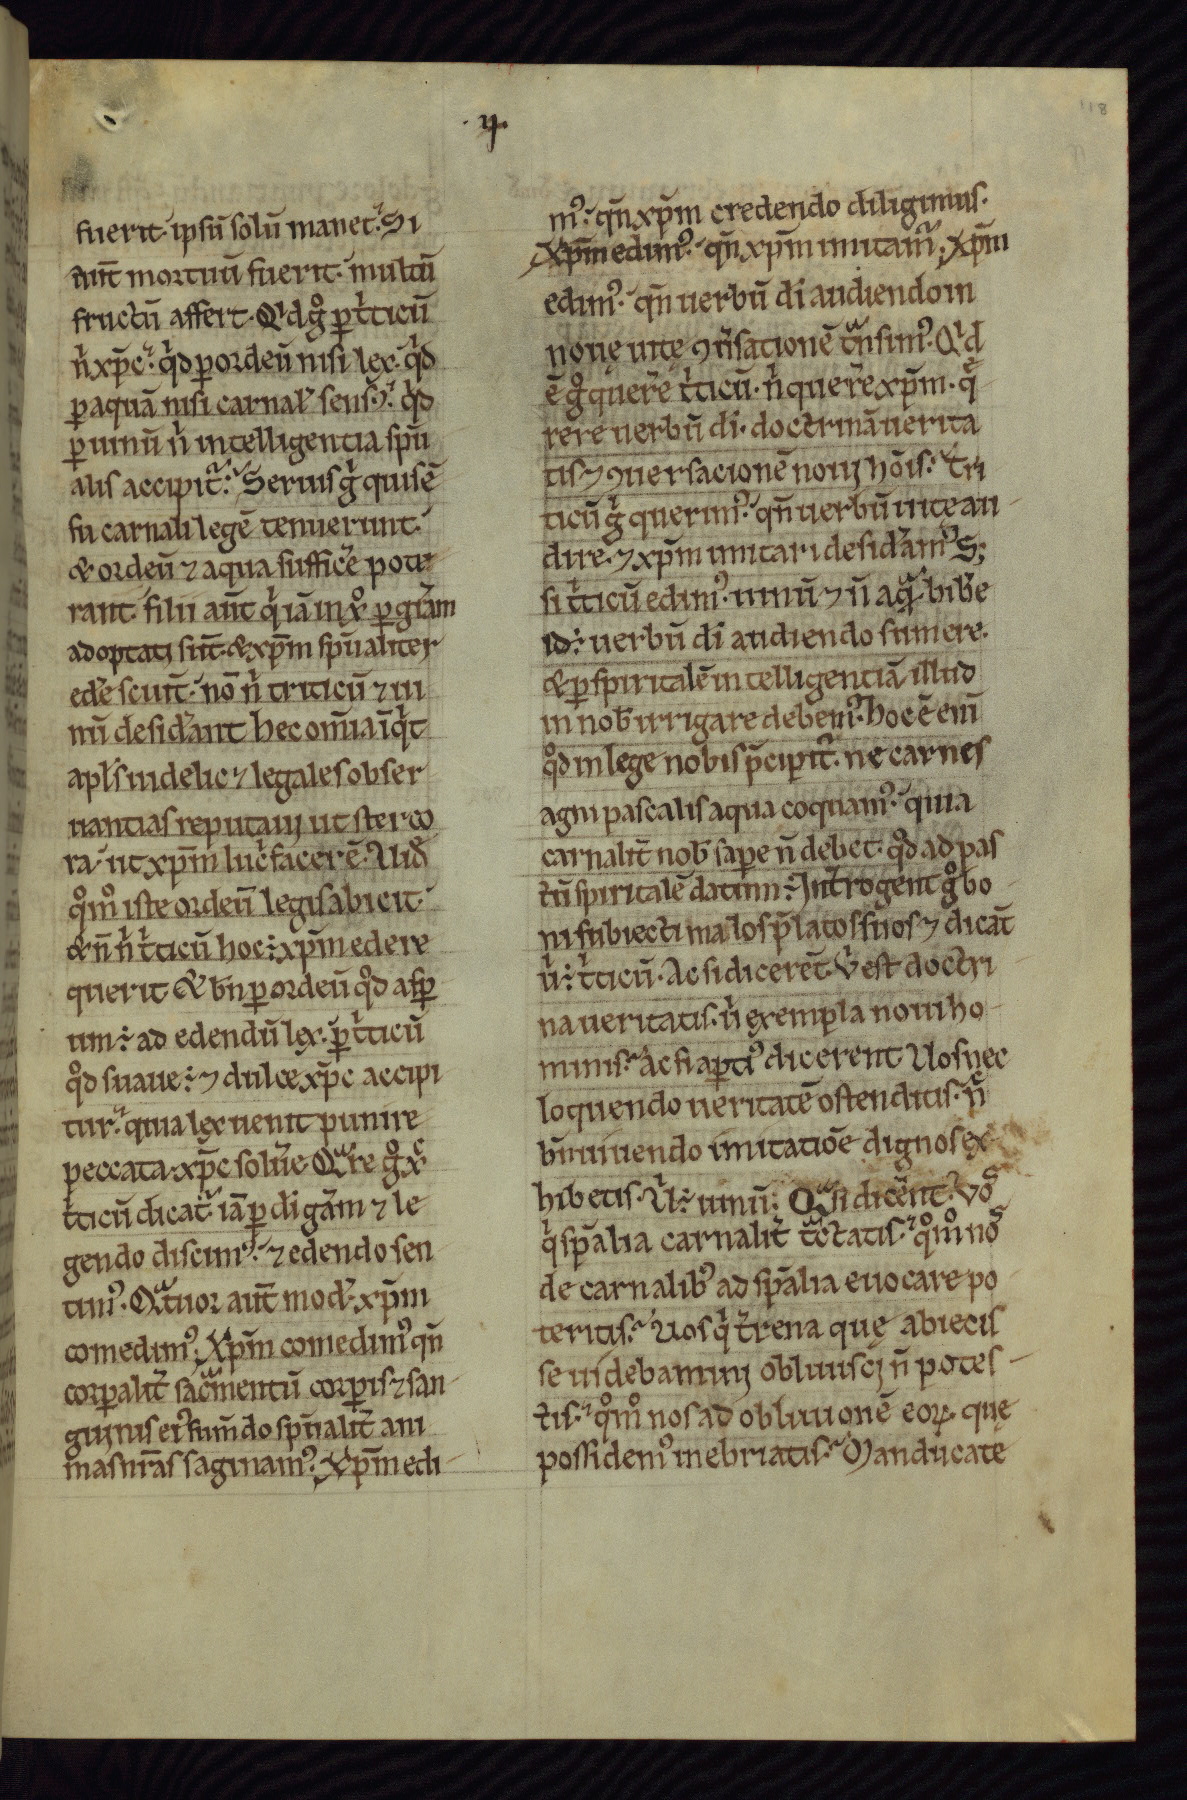 .ij.
118
fuerit· ipsū solū manet· Si
aut̄ mortuū fuerit· multū
fructū affert· Qͥd gͦ ꝑ tͥticū
nͥ xp̄c· qͥd ꝑ ordeū nisi lex· qͥd
ꝑ aquā nisi carnal' sens᷒· qͥd
ꝑ uinū nͥ intelligentia spū
alis accipit᷑· Serui sgͥ qui sē
su carnali legē tenuerunt·
& ordeū ⁊ aqua suffice᷑ pote
rant· filii aut̄ qͥ iā in xͦ ꝑ grām
adoptati sūt· & xp̄m sp̄ualiter
ede᷑ sciūt· nō nͥ triticū ⁊ ui
nū desid᷑ant hec omīa īqͥt
apl's iudeic ⁊ legales obser
uantias reputaui ut sterco
ra· ut xp̄m luc᷑facerē· Uid
qͦmͦ iste ordeū legis abicit·
& n̄ nͥ tͥticū hoc ÷ xp̄m edere
querit & bn̄ ꝑ ordeū qͦd asꝑ
um ÷ ad edendū lex· ꝑ tͥticū
qͦd suaue ÷ ⁊ dulce xp̄c accipi
tur· quia lex uenit punire
peccata· xp̄c solu᷑e· Qͣre gͦ xͨ
tͥticū dicat᷑ iā ꝑ dī grām ⁊ le
gendo discim᷒· ⁊ edendo sen
tim᷒· Qͣtuor aut̄ mod' xp̄m
comedim᷒· Xp̄m comedim᷒ qn̄
corꝑalit᷑ sacͣmentū corꝑis ⁊ san
guinis ei᷒ sum̄do sp̄ualit᷑ ani
mas nr̄as saginam᷒· Xp̄m edi
m᷒· qn̄ xp̄m credendo diligimus·
Xp̄m edim᷒· qn̄ xp̄m imitam᷑· Xp̄m
edim᷒· qn̄ uerbū dī audiendo in
noue uite ꝯu᷑sationē tͣnsim᷒· Qͥd
ē gͦ quere᷑ tͥticū· nͥ quere᷑ xp̄m· q̄
rere uerbū dī· doctrinā uerita
tis ⁊ ꝯuersacionē noui hōis· Tri
ticū gͥ querim᷒· qn̄ uerbū uite au
dire· ⁊ xp̄m imitari desid᷑am᷒ S;
si tͥticū edim᷒· uinū ⁊ n̄ aqͣ bibe᷑
id ÷ uerbū dī audiendo sumere·
& ꝑ spiritalē intelligentiā illud
in nob̄ irrigare debem᷒· hoc ē enī
qͦd in lege nobis p̄cipit᷑· ne carnes
agni pascalis aqua coquam᷒· quia
carnalit᷑ nob̄ saꝑe n̄ debet· qͦd ad pas
tū spiritalē datum ÷ Int᷑rogent gͦ bo
ni subiecti malos p̄latos suos ⁊ dicāt
uͥ ÷ tͥticū· Ac si dicerēt Vͥ est doctri
na ueritatis· uͥ exempla noui ho
minis· Ac si aꝑti᷒ dicerent Uos nec
loquendo ueritatē ostenditis· n̄
bn̄ uiuendo imitatiōe dignos ex
hibetis· Vͥl ÷ uinū· Qͣsi dice᷑nt· Vos
qͥ sp̄alia carnalit᷑ tͣctatis· qͦmͦ nos
de carnalib᷒ ad sp̄alia euocare po
teritis· Uos qͥ t᷑rena que abiecis
se uidebamini obliuisci n̄ potes
tis· qͦmͦ nos ad obliuionē eoꝝ que
possidem᷒ inebriatis· Manducate